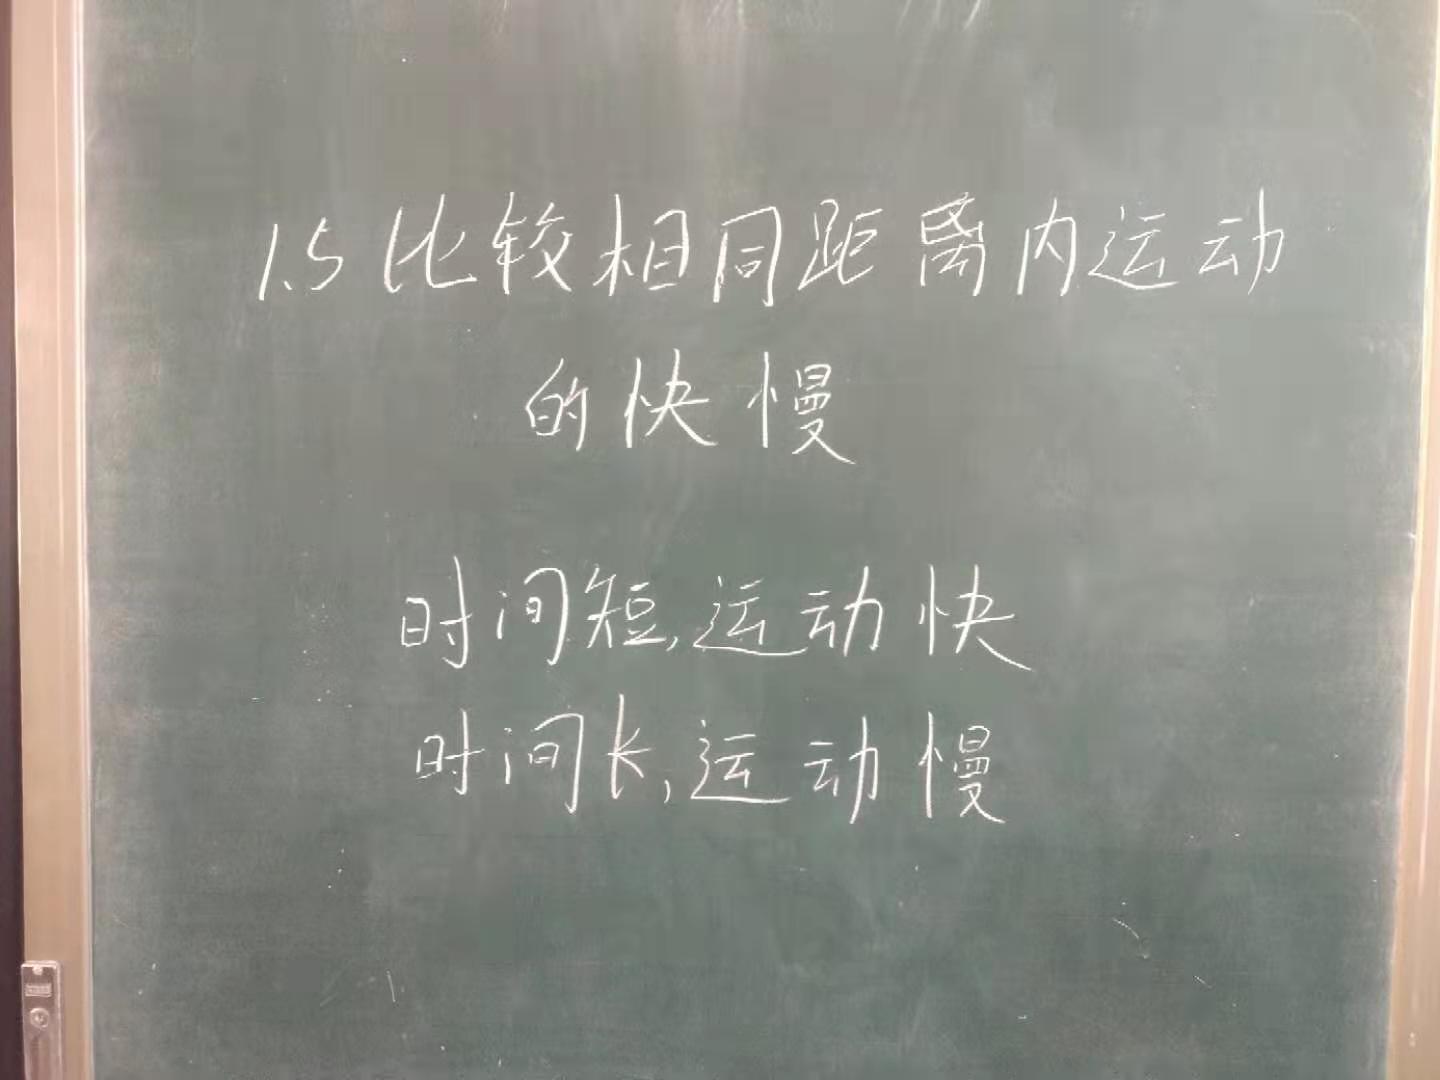 1.5比较相同距离内运动
的快慢
时间短,运动快
时间长,运动慢